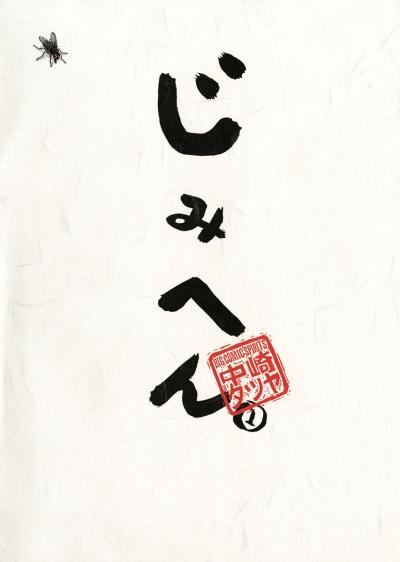 じみへん
①
BIG COMIC SPIRITS
中崎
タツヤ